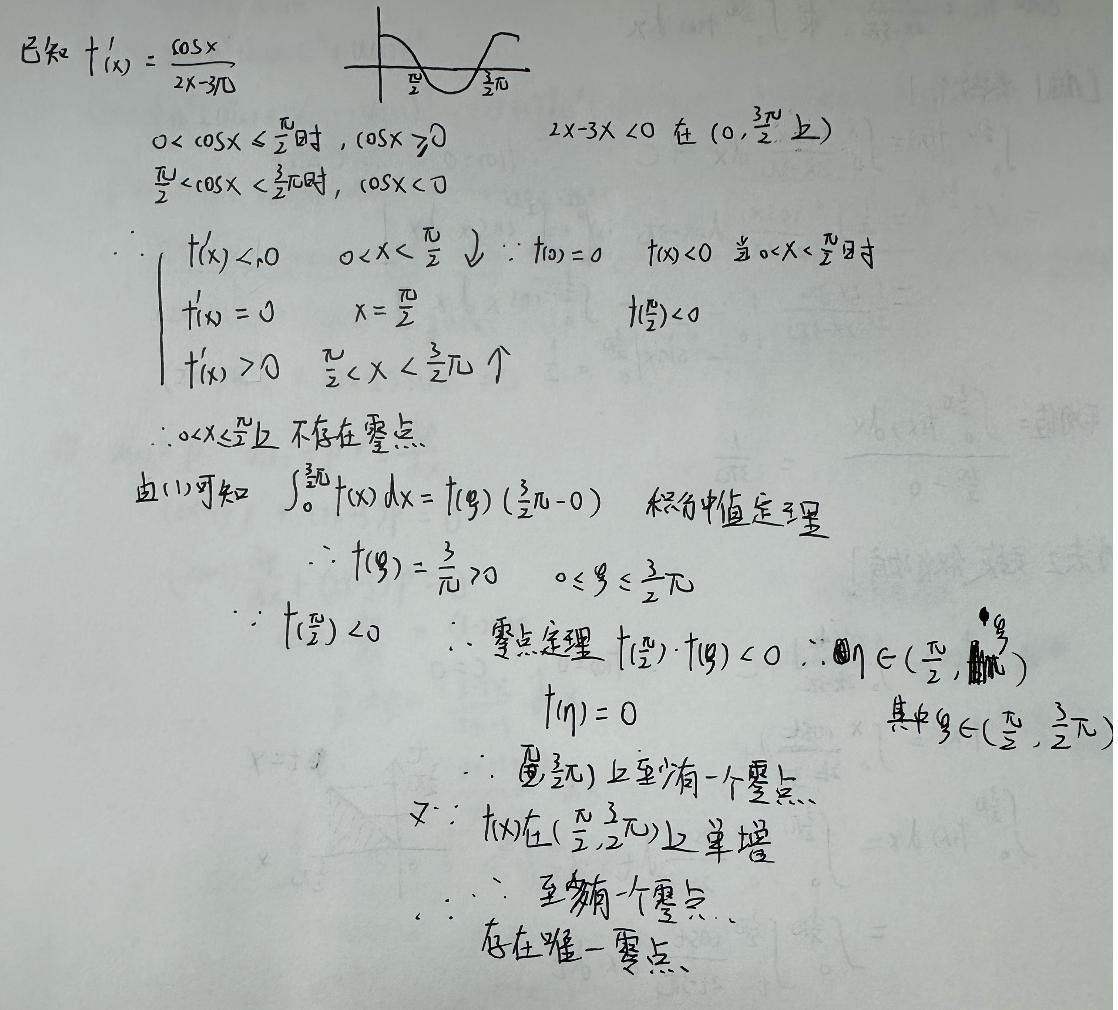 已知 f'(x) = cosx / (2x-3π)
π/2 3/2π
0 < cosx ≤ π/2 时, cosx ≥ 0 2x-3x < 0 在 (0, 3π/2 上)
π/2 < cosx < 3/2π时, cosx < 0
∵ f'(x) < 0 0 < x < π/2 ↓ ∵ f(0) = 0 f(x) < 0 当 0 < x < π/2 时
f'(x) = 0 x = π/2 f(π/2) < 0
f'(x) > 0 π/2 < x < 3/2π ↑
∴ 0 < x ≤ π/2 上 不存在零点
由(1)可知 ∫₀^{3/2π} f(x) dx = f(ξ) (3/2π - 0) 积分中值定理
∴ f(ξ) = 3/π > 0 0 ≤ ξ ≤ 3/2 π
∵ f(π/2) < 0 ∴ 零点定理 f(π/2) · f(ξ) < 0 ∴ η ∈ (π/2, ξ)
f(η) = 0 其中 ξ ∈ (π/2, 3/2 π)
∴ (π/2, 3/2π) 上至少有一个零点
又∵ f(x)在(π/2, 3/2π)上单增
∴ 至多有一个零点
存在唯一零点